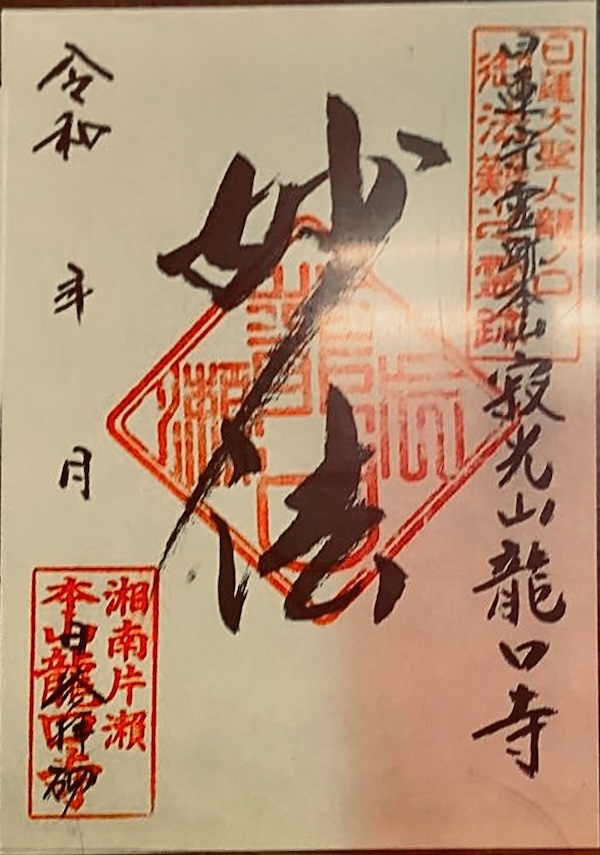 日蓮大聖人龍ノ口
御法難之霊跡
日蓮宗霊跡本山寂光山龍口寺
妙法
令和 年 月 日参拝
湘南片瀬
本山龍口寺